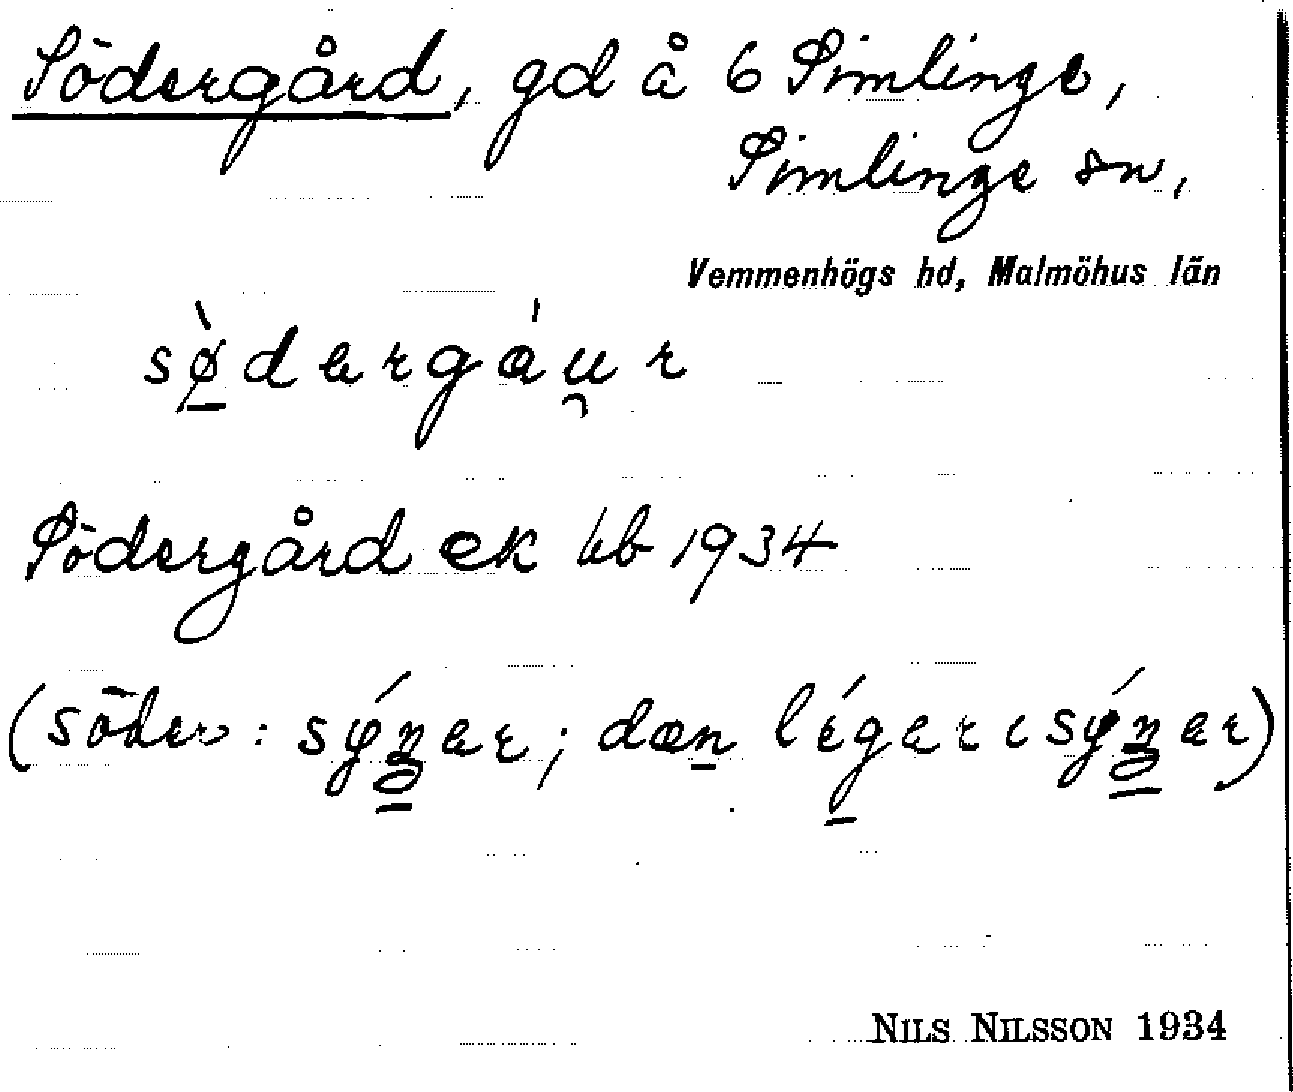 Södergård, gd å 6 Simlinge,
Simlinge sn,
Vemmenhögs hd, Malmöhus län
sø̀dergáu̯r
Södergård ek kb 1934
(söder: sýner; dæn légere sýner)
NILS NILSSON 1934